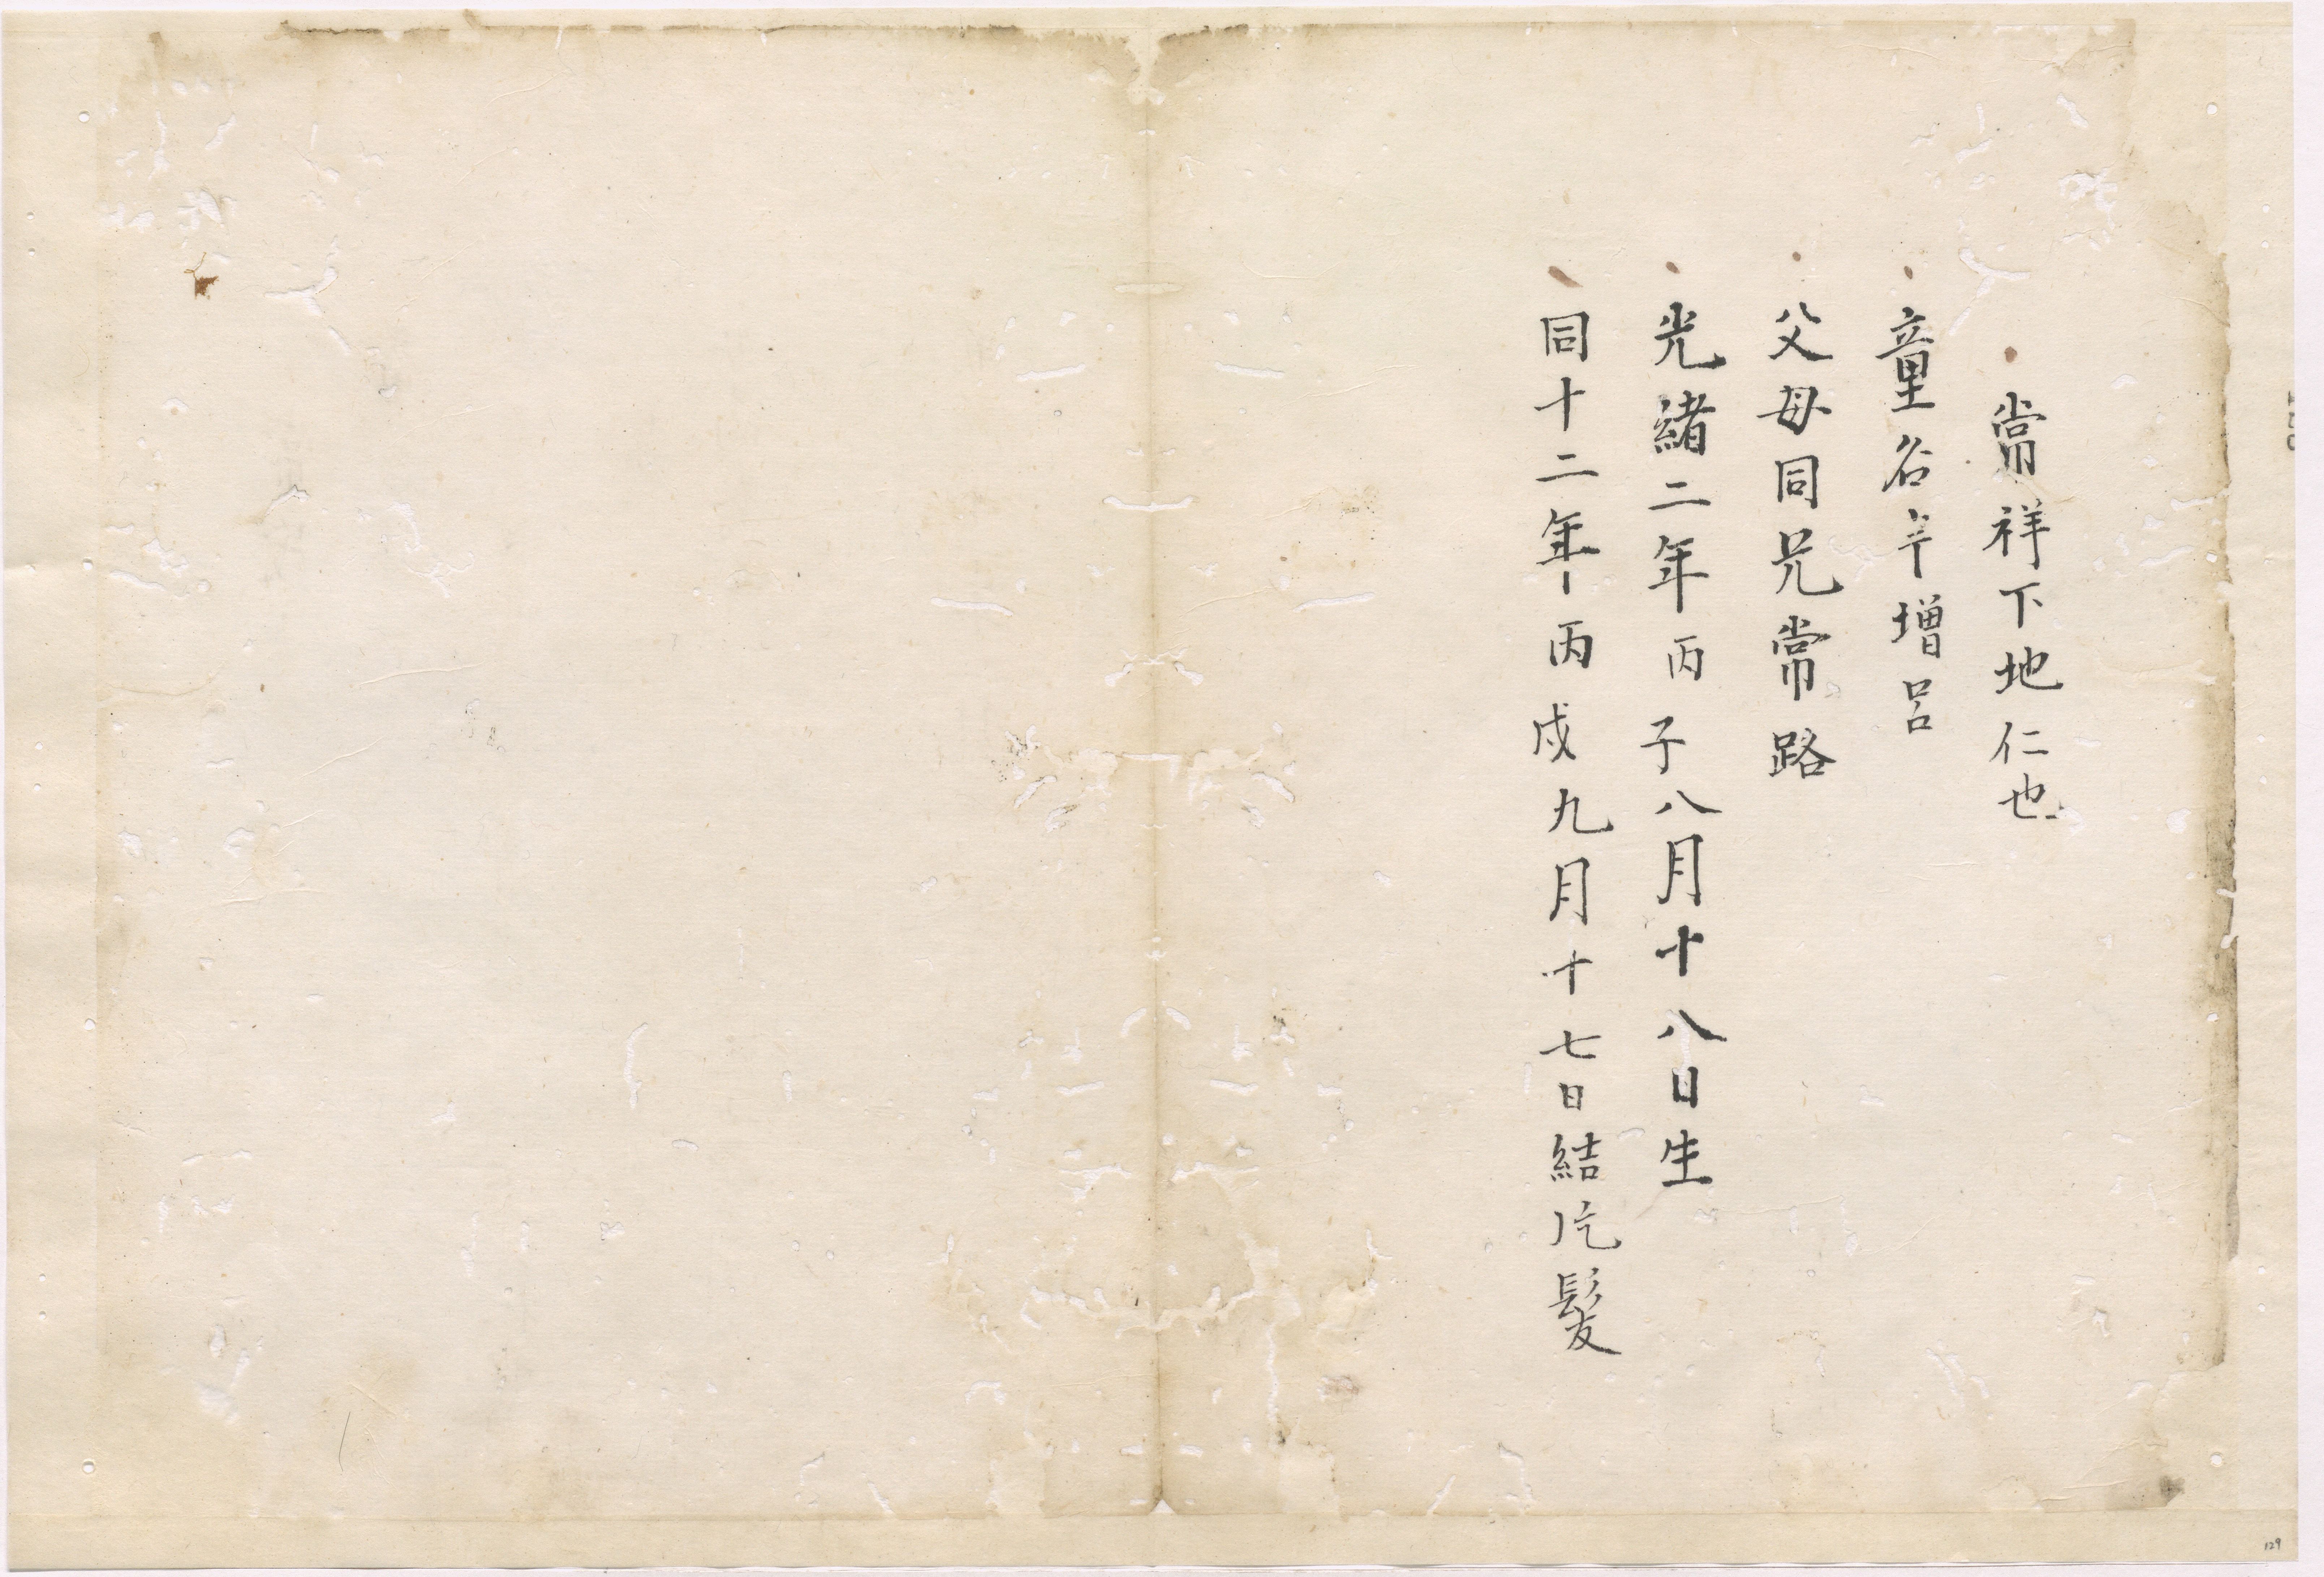 常祥下地仁也
童名辛增吕
父母同兄常路
光緒二年丙子八月十八日生
同十二年丙戌九月十七日結片髮
129